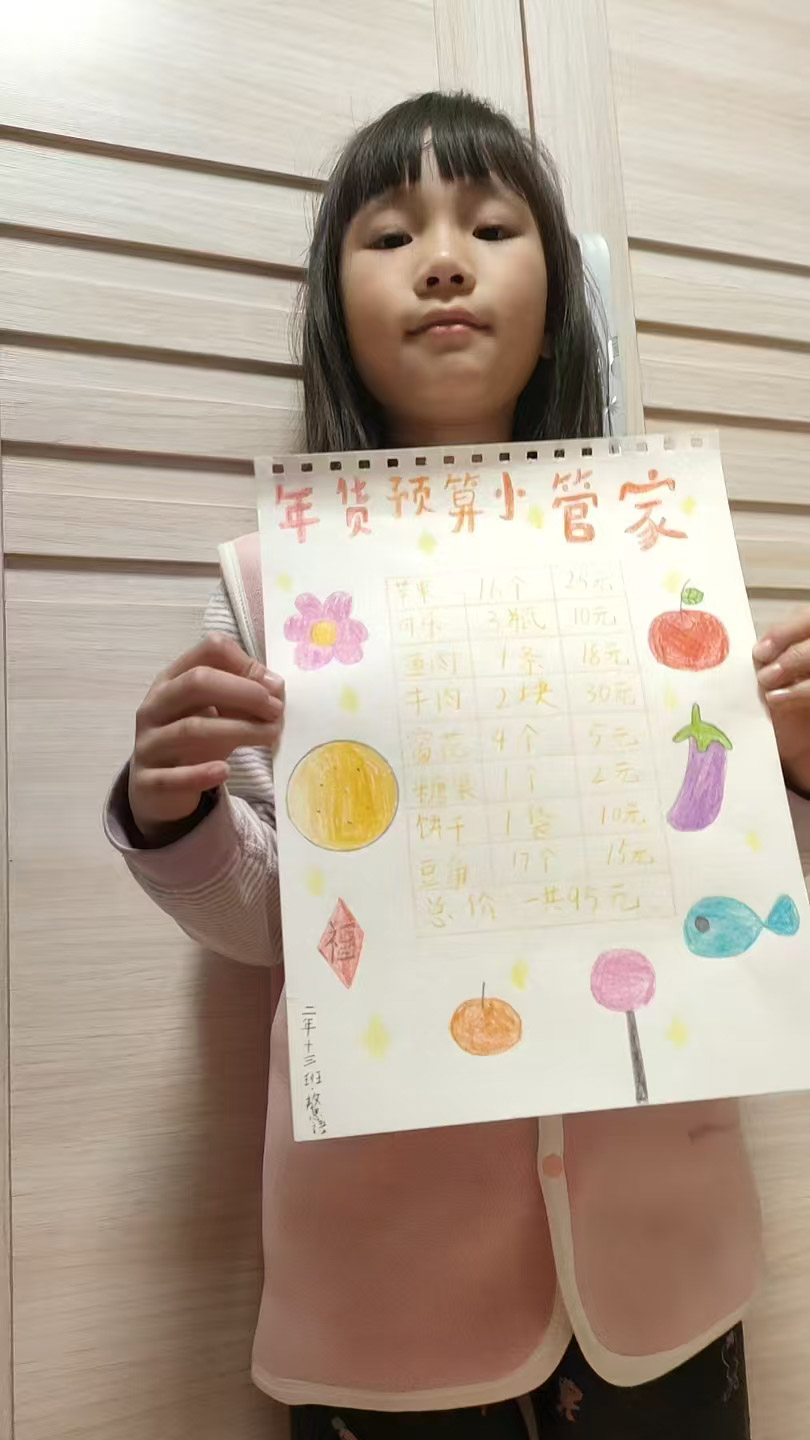 年货预算小管家
苹果 16个 25元
可乐 3瓶 10元
鱼肉 1条 18元
牛肉 2块 30元
窗花 4个 5元
糖果 1个 2元
饼干 1袋 10元
豆角 17个 15元
总价 一共95元
福
二年十三班